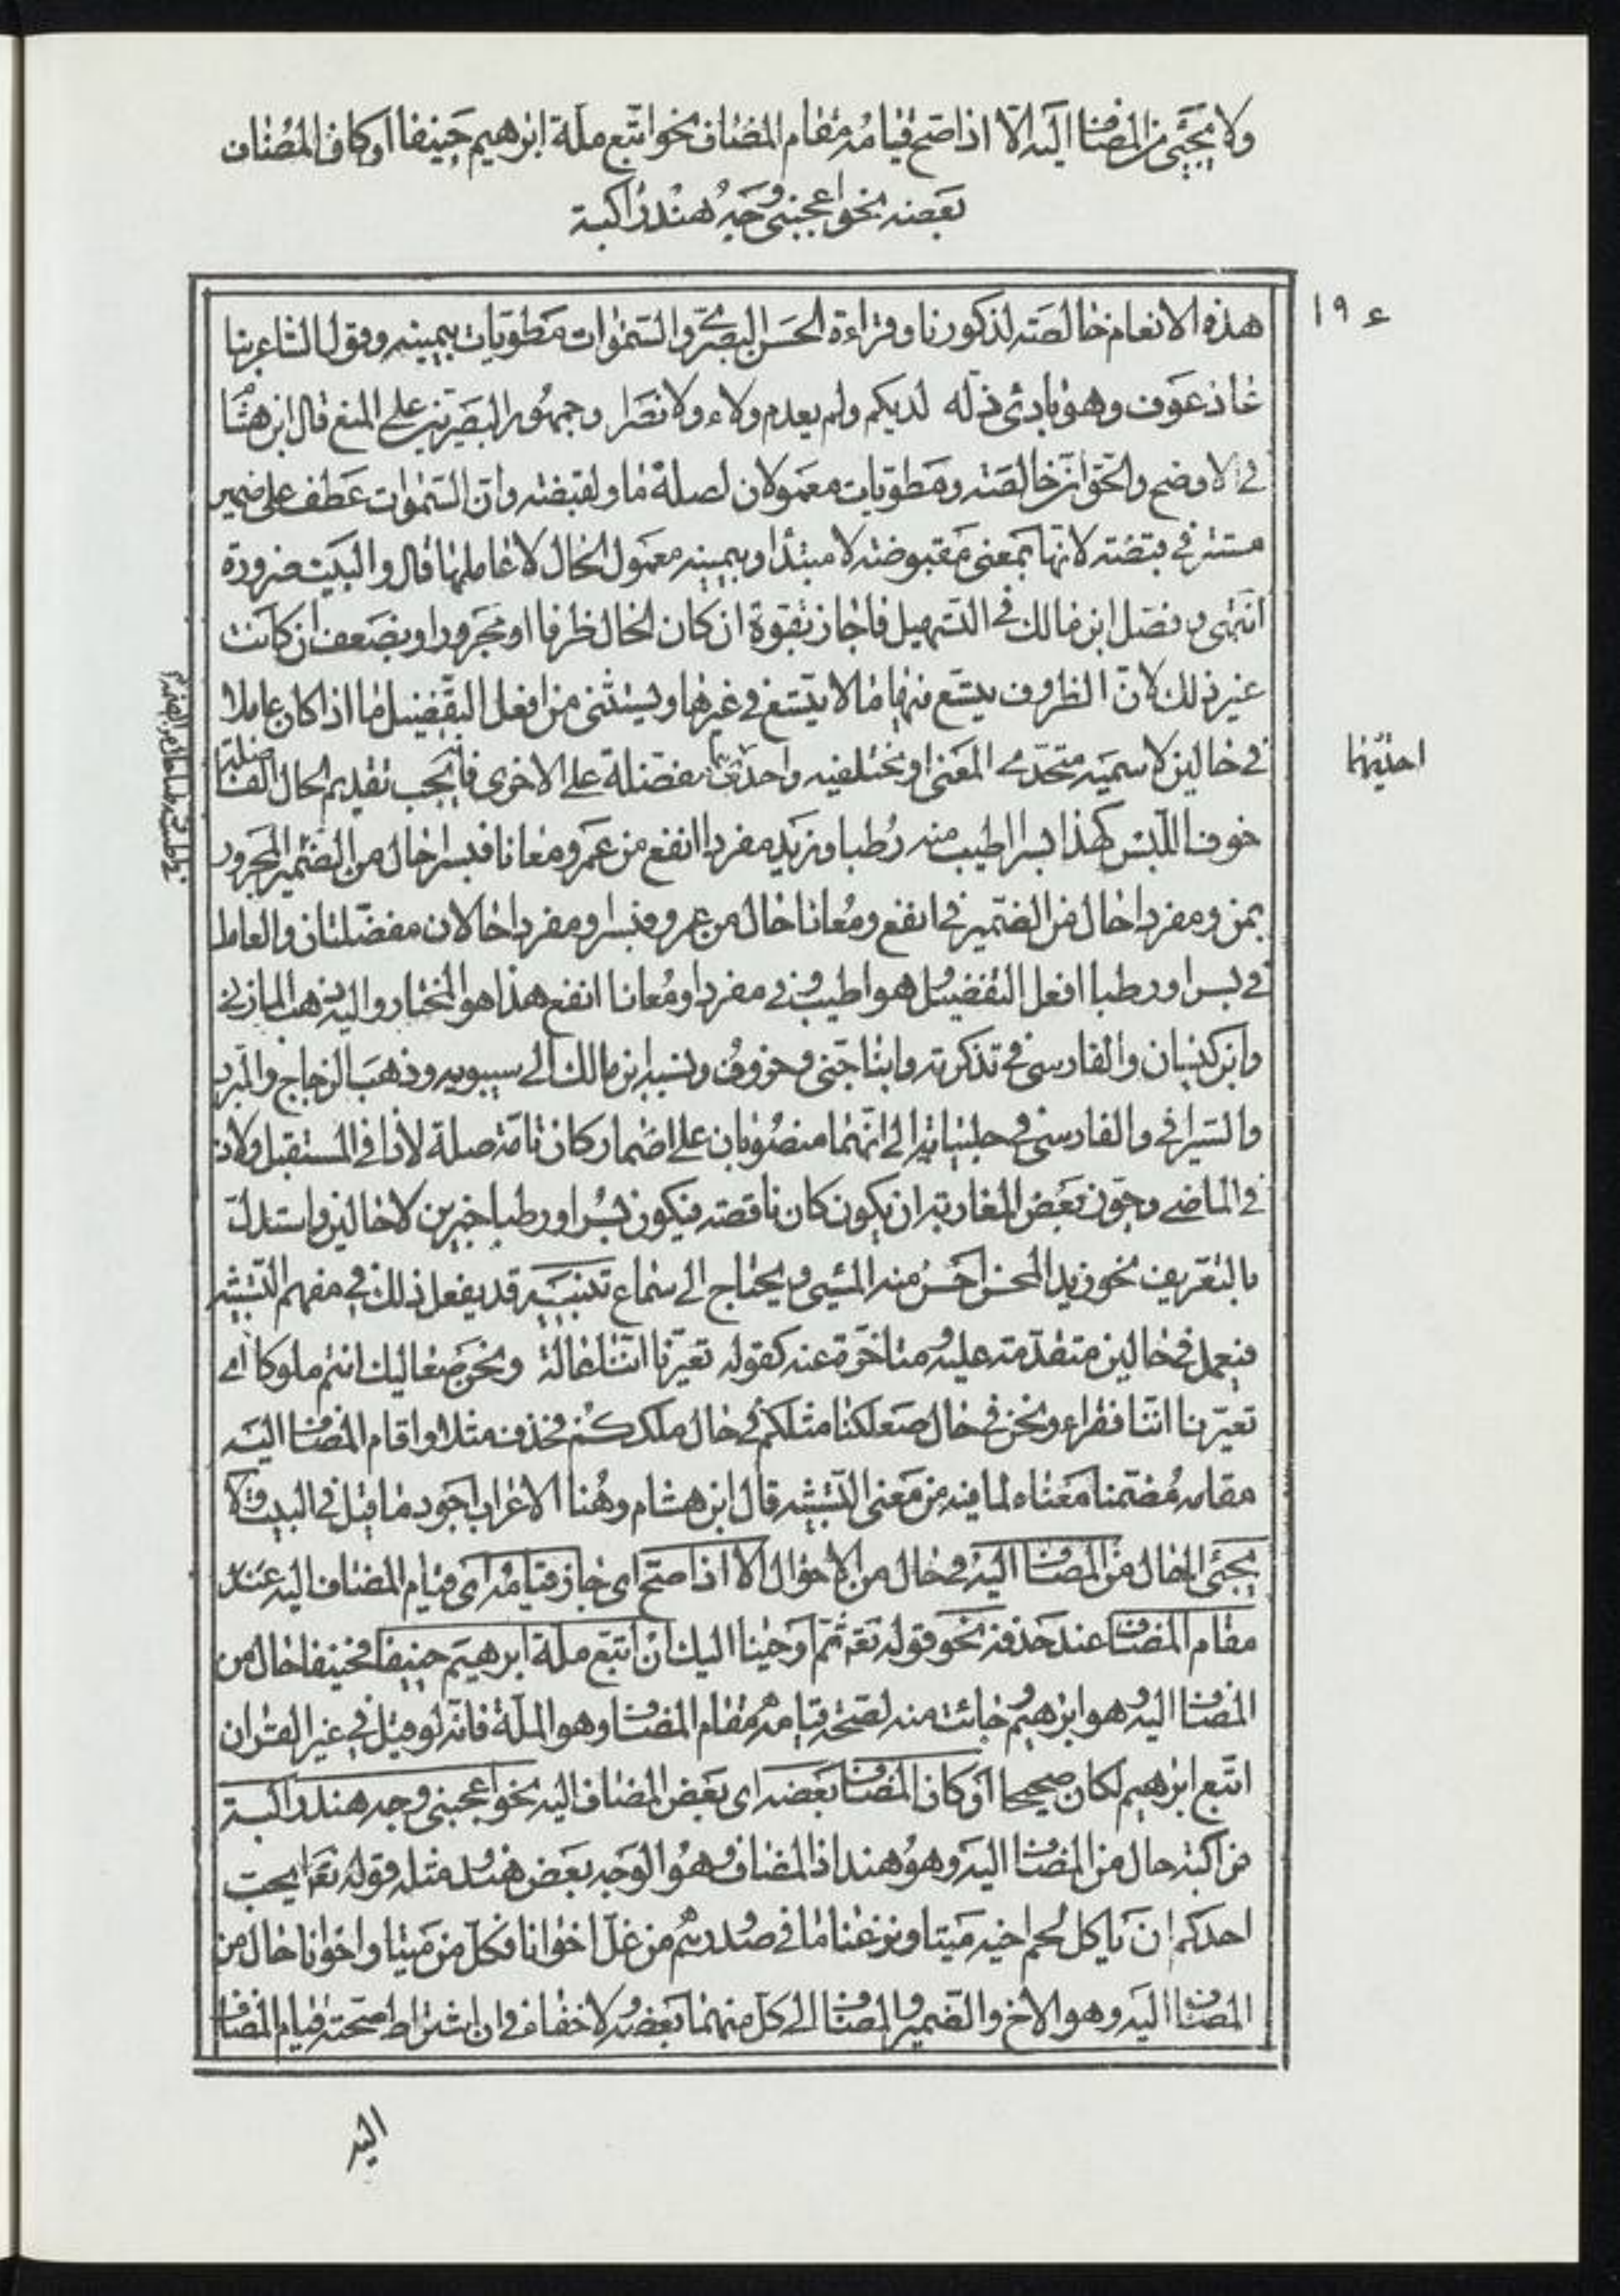 ولا يجيئ من المضاف اليه الا اذا صح قيامه مقام المضاف نحو اتبع ملة ابرهيم حنيفا او كان المضاف
بعضه نحو اعجبني وجه هند راكبة
١٩ ع
هذه الانعام خالصة لذكورنا وقراءة الحسن البصري والسموات مطويات بيمينه وقول الشاعر بنا
عاذ عوف وهو بادئ ذلة لديكم ولم يعدم ولاء ولا نصرا وجمهور البصريين على المنع قال ابن هشام
في الاوضح والحق ان خالصة ومطويات معمولان لصلة ما ولقبضته وان السموات عطف على ضمير
مستتر في قبضته لانها بمعنى مقبوضته لا مبتدأ وبيمينه معمول الحال لا عاملها قال والبيت ضرورة
انتهى وفصل ابن مالك في التسهيل فاجاز بقوة ان كان الحال ظرفا او مجرورا وبضعف ان كانت
غير ذلك لان الظروف يتسع فيها ما لا يتسع في غيرها ويستثنى من افعل التفضيل ما اذا كان عاملا
في حالين لاسمين متحدى المعنى او مختلفيه واحديهما مفضلة على الاخرى فانه يجب تقديم الحال الفاضلة
احديهما
خوف اللبس كهذا بسرا اطيب منه رطبا وزيد مفردا انفع من عمرو معانا فبسرا حال من الضمير المجرور
بمن ومفردا حال من الضمير في انفع ومعانا حال من عمرو وبسرا ومفردا حالان مفضلتان والعامل
في بسرا ورطبا افعل التفضيل وهو اطيب وفي مفردا ومعانا انفع هذا هو المختار واليه ذهب المازني
وابن كيسان والفارسي في تذكرته وابنا جني وخروف ونسبه ابن مالك الى سيبويه وذهب الزجاج والمبرد
والسيرافي والفارسي في حلبياته الى انهما منصوبان على اضمار كان تامة صلة لاذا في المستقبل ولاذ
في الماضي وجوز بعض المغاربة ان يكون كان ناقصة فيكون بسرا ورطبا خبرين لا حالين واستدل
بالتعريف نحو زيد المحسن احسن منه المسيئ ويحتاج الى سماع تنبيه قد يفعل ذلك في مفهم التشبيه
فيعمل في حالين متقدمة عليه ومتاخرة عنه كقوله تعيرنا اننا عالة ونحن صعاليك انتم ملوكا اى
تعيرنا اننا فقراء ونحن في حال صعلكنا مثلكم في حال ملككم فحذف مثلا واقام المضاف اليه
مقامه مضمنا معناه لما فيه من معنى التشبيه قال ابن هشام وهنا الاعراب اجود ما قيل في البيت ولا
يجيئ الحال من المضاف اليه في حال من الاحوال الا اذا صح اى جاز قيامه اى قيام المضاف اليه عند
مقام المضاف عند حذفه نحو قوله تع ثم اوحينا اليك ان اتبع ملة ابرهيم حنيفا فحنيفا حال من
المضاف اليه وهو ابرهيم وجائت منه لصحة قيامه مقام المضاف وهو الملة فانه لو قيل في غير القران
اتبع ابرهيم لكان صحيحا او كان المضاف بعضه اى بعض المضاف اليه نحو اعجبني وجه هند راكبة
فراكبة حال من المضاف اليه وهو هند اذ المضاف وهو الوجه بعض هند ومثله قوله تع ايحب
احدكم ان ياكل لحم اخيه ميتا ونزعنا ما في صدورهم من غل اخوانا فكل من ميتا واخوانا حال من
المضاف اليه وهو الاخ والضمير والمضاف الى كل منهما بعضه ولا خفاء في ان اشتراط صحة قيام المضاف
اليه